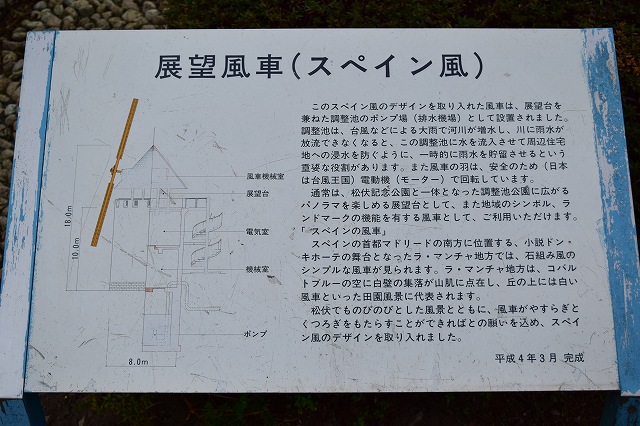 展望風車(スペイン風)
このスペイン風のデザインを取り入れた風車は、展望台を
兼ねた調整池のポンプ場(排水機場)として設置されました。
調整池は、台風などによる大雨で河川が増水し、川に雨水が
放流できなくなると、この調整池に水を流入させて周辺住宅
地への浸水を防ぐように、一時的に雨水を貯留させるという
重要な役割があります。また風車の羽は、安全のため(日本
は台風王国)電動機(モーター)で回転しています。
通常は、松伏記念公園と一体となった調整池公園に広がる
パノラマを楽しめる展望台として、また地域のシンボル、ラ
ンドマークの機能を有する風車として、ご利用いただけます。
「スペインの風車」
スペインの首都マドリードの南方に位置する、小説ドン・
キホーテの舞台となったラ・マンチャ地方では、石組み風の
シンプルな風車が見られます。ラ・マンチャ地方は、コバル
トブルーの空に白壁の集落が山肌に点在し、丘の上には白い
風車といった田園風景に代表されます。
松伏でものびのびとした風景とともに、風車がやすらぎと
くつろぎをもたらすことができればとの願いを込め、スペイ
ン風のデザインを取り入れました。
平成4年3月 完成
風車機械室
展望台
電気室
機械室
ポンプ
18.0m
10.0m
8.0m